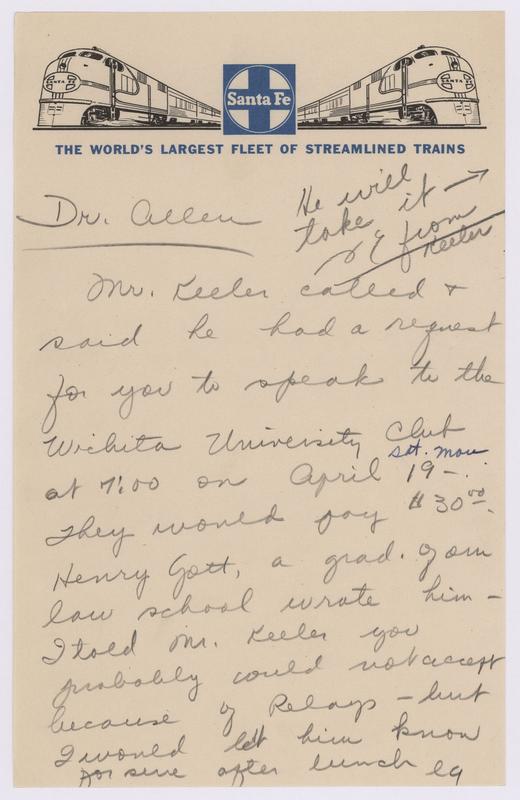 SANTA FE
Santa Fe
SANTA FE
THE WORLD'S LARGEST FLEET OF STREAMLINED TRAINS
Dr. Allen
He will
take it
from
Keeler
Mr. Keeler called +
said he had a request
for you to speak to the
Wichita University Club
Sat. Mon
at 7:00 on April 19-.
They would pay $30.00.
Henry Gott, a grad. of our
law school wrote him -
I told Mr. Keeler you
probably could not accept
because of Relays - but
I would let him know
for sure after lunch